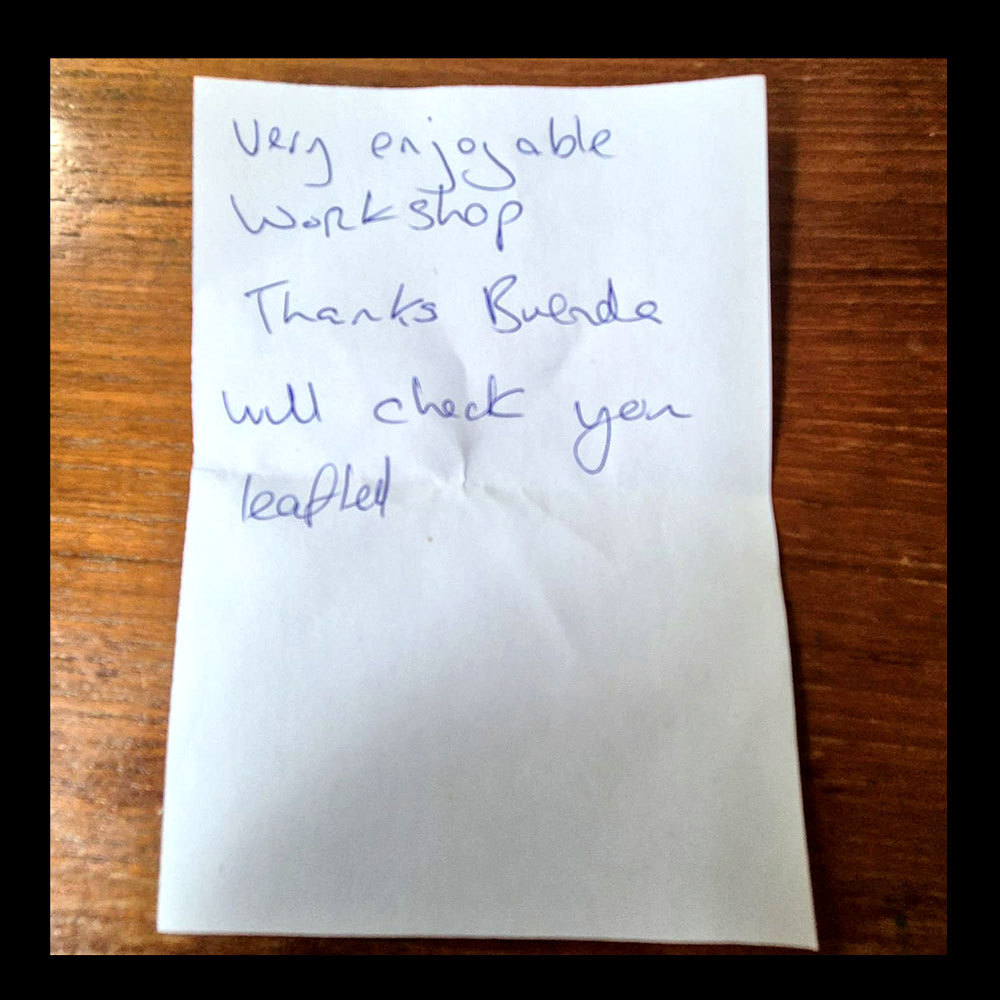 Very enjoyable
Workshop
Thanks Brenda
will check your
leaflet